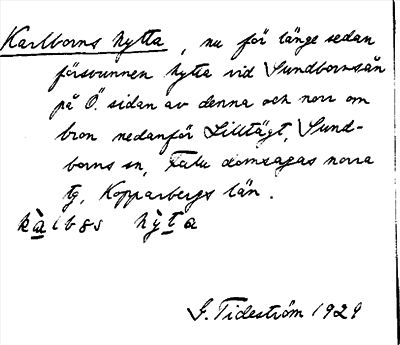 Karlborns hytta, nu för länge sedan
försvunnen hytta vid Sundbornsån
på Ö. sidan av denna och norr om
bron nedanför Lilltägt, Sund-
borns sn, Falu domsagas norra
tg, Kopparbergs län.
kàlbas hỳta
G. Tideström 1929